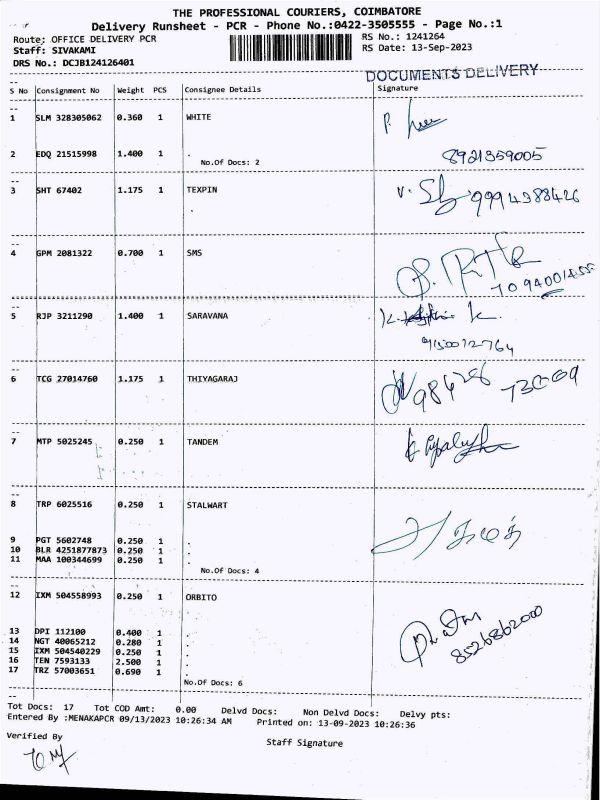 THE PROFESSIONAL COURIERS, COIMBATORE
Delivery Runsheet - PCR - Phone No.:0422-3505555 - Page No.:1
Route; OFFICE DELIVERY PCR RS No.: 1241264
Staff: SIVAKAMI RS Date: 13-Sep-2023
DRS No.: DCJB124126401
DOCUMENTS DELIVERY
S No Consignment No Weight PCS Consignee Details Signature
1 SLM 328305062 0.360 1 WHITE
2 EDQ 21515998 1.400 1 .
No.Of Docs: 2
8921359005
3 SHT 67402 1.175 1 TEXPIN
.
9994388426
4 GPM 2081322 0.700 1 SMS
5 RJP 3211290 1.400 1 SARAVANA
9150012764
6 TCG 27014760 1.175 1 THIYAGARAJ
7 MTP 5025245 0.250 1 TANDEM
8 TRP 6025516 0.250 1 STALWART
9 PGT 5602748 0.250 1 .
10 BLR 4251877873 0.250 1 .
11 MAA 100344699 0.250 1 .
No.Of Docs: 4
12 IXM 504558993 0.250 1 ORBITO
13 DPI 112100 0.400 1 .
14 NGT 40065212 0.280 1 .
15 IXM 504540229 0.250 1 .
16 TEN 7593133 2.500 1 .
17 TRZ 57003651 0.690 1 .
8526862000
No.Of Docs: 6
Tot Docs: 17 Tot COD Amt: 0.00 Delvd Docs: Non Delvd Docs: Delvy pts:
Entered By :MENAKAPCR 09/13/2023 10:26:34 AM Printed on: 13-09-2023 10:26:36
Verified By
Staff Signature